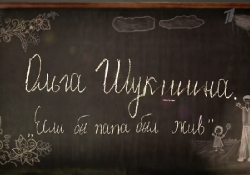 Ольга Шукшина.
„Если бы папа был жив"